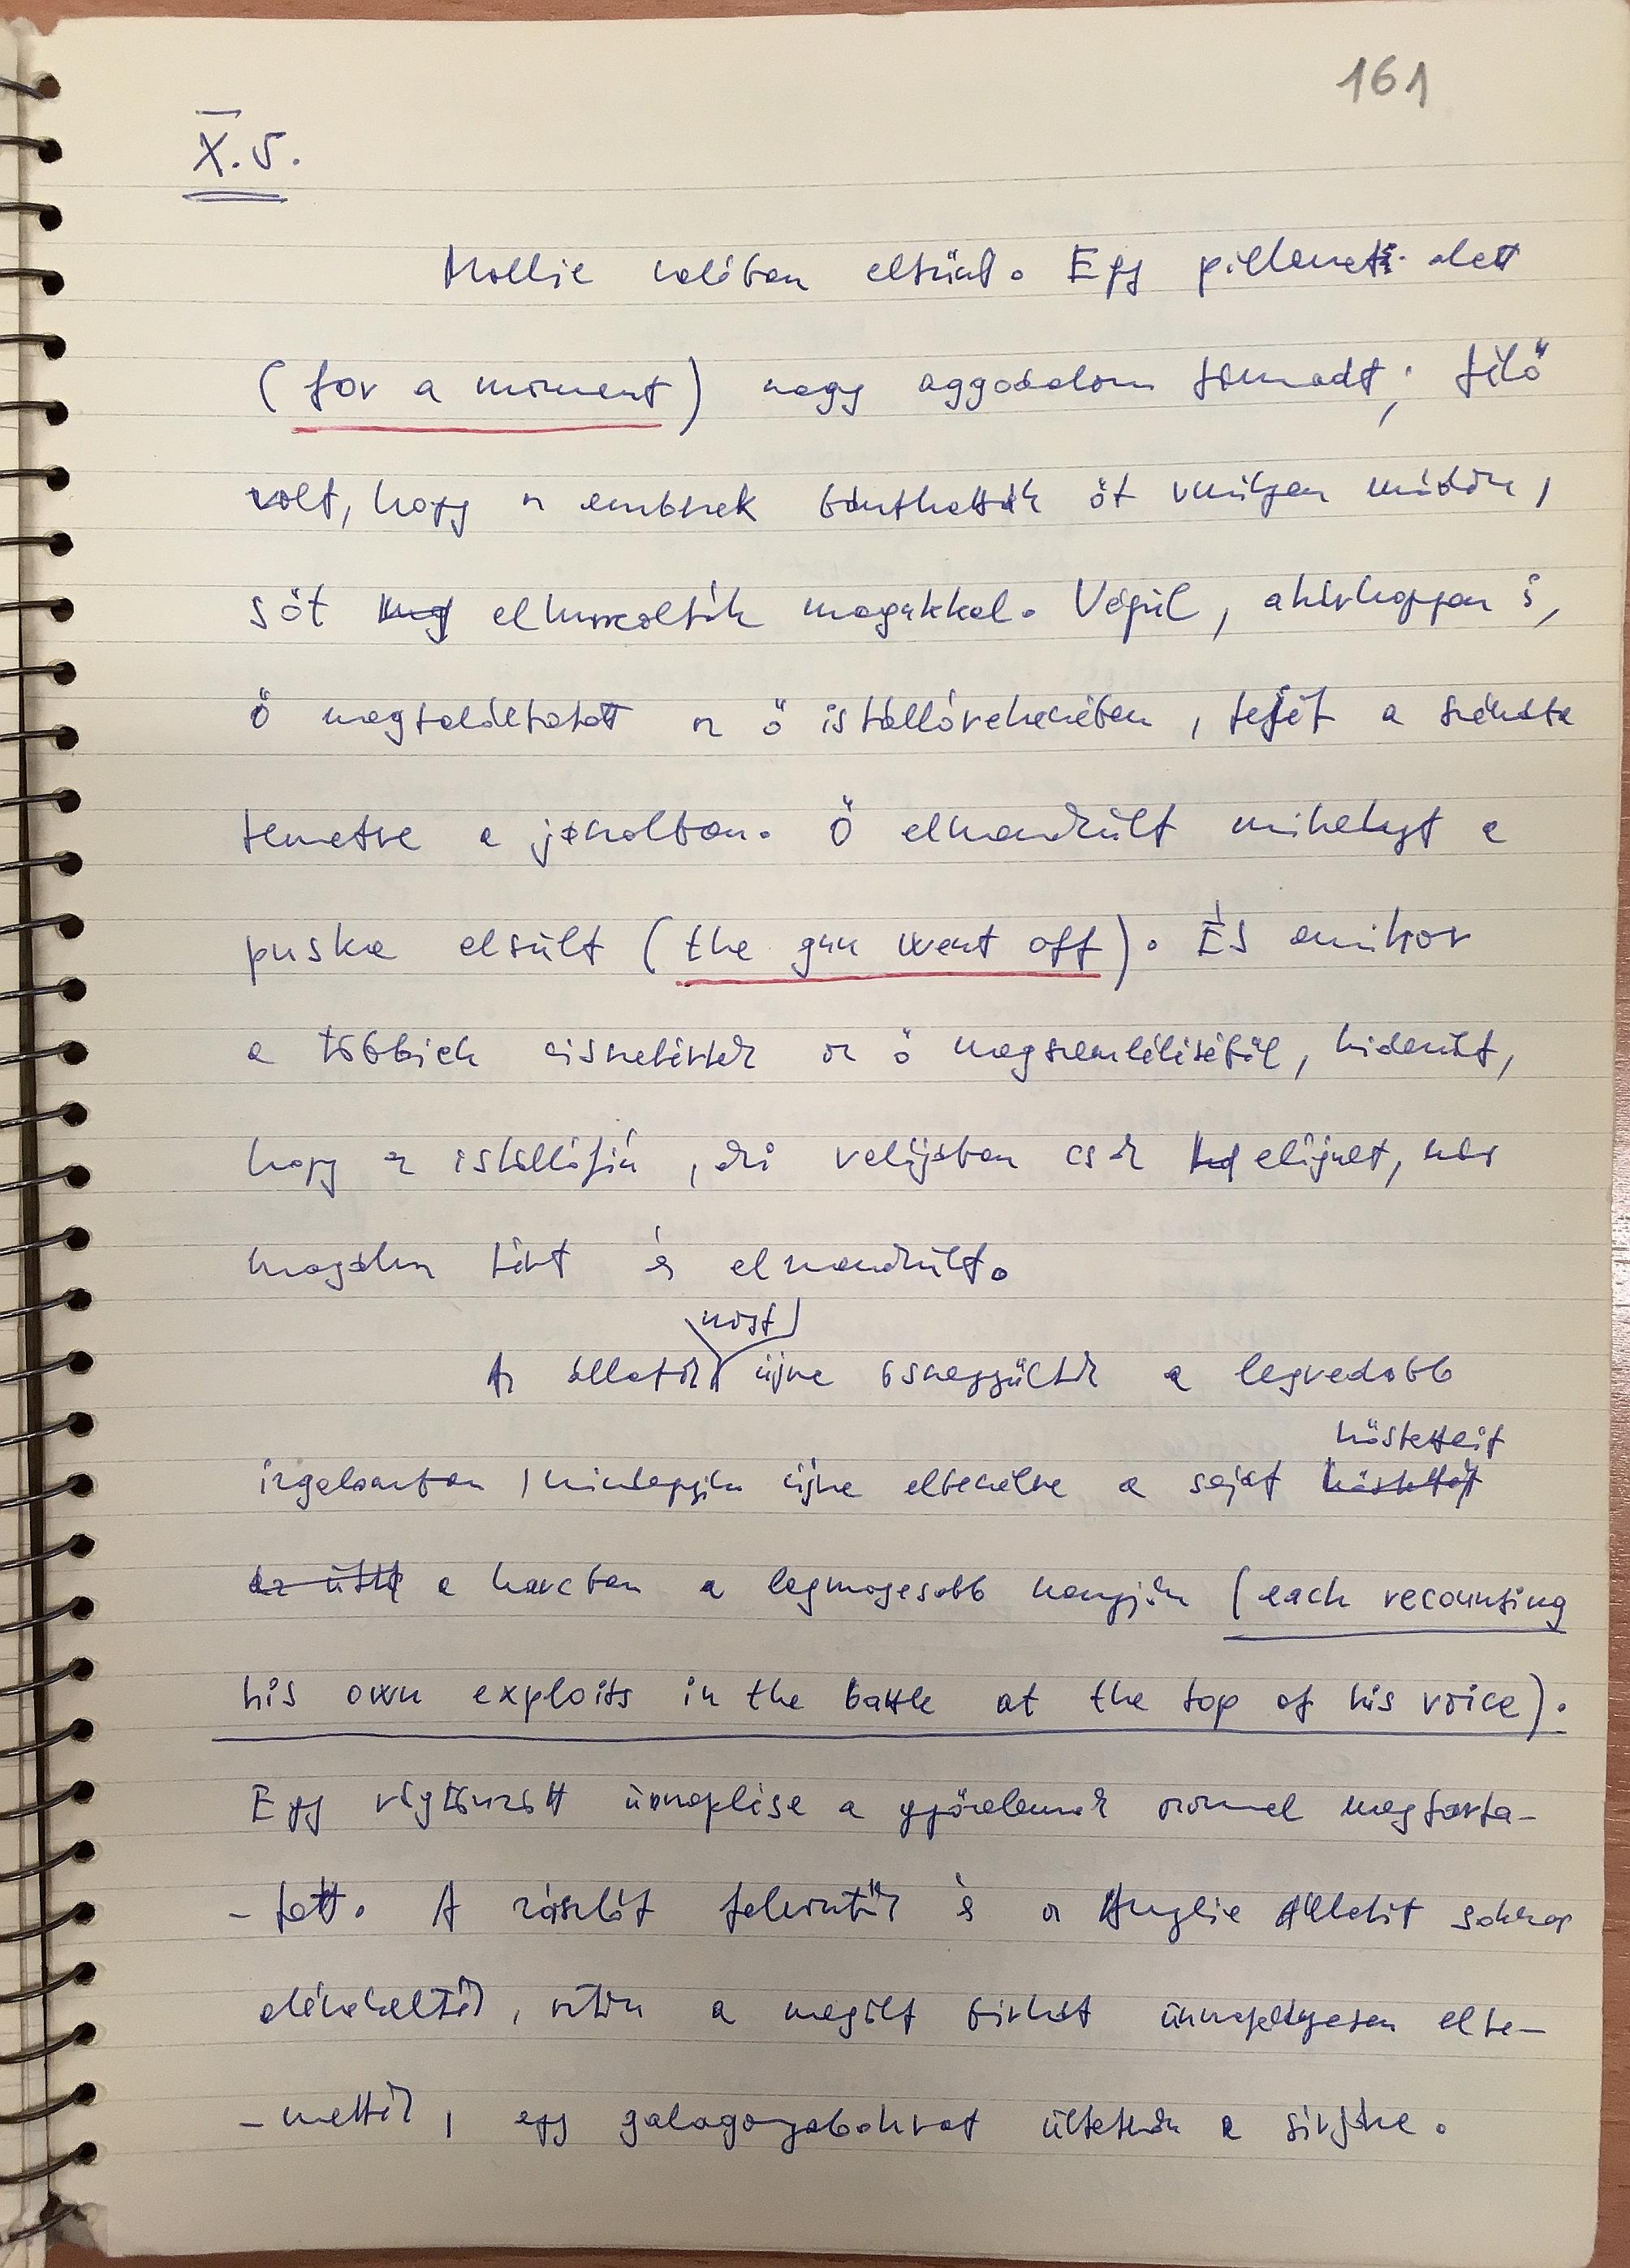 161
X.5.
Mollie valóban eltűnt. Egy pillanat alatt
(for a moment) nagy aggodalom támadt; félő
volt, hogy az emberek bánthatták őt vmilyen módon,
sőt meg elhurcolták magukkal. Végül, akárhogyan is,
ő megtaláltatott az ő istállórekeszében, fejét a szénába
temetve a jászolban. Ő elmenekült mihelyt a
puska elsült (the gun went off). És amikor
a többiek visszatértek az ő megszemléléséből, kiderült,
hogy az istállófiú, aki valójában csak elájult, már
magához tért és elmenekült.
most
Az állatok újra összegyűltek a legvadabb
izgalomban, mindegyik újra elbeszélve a saját
hőstetteit
a harcban a legmagasabb hangján (each recounting
his own exploits in the battle at the top of his voice).
Egy rögtönzött ünneplése a győzelemnek azonnal megtarta-
-tott. A zászlót felvonták és az Anglia Állatait sokszor
elénekelték, aztán a megölt birkát ünnepélyesen elte-
-mették, egy galagonyabokrot ültetvén a sírjára.